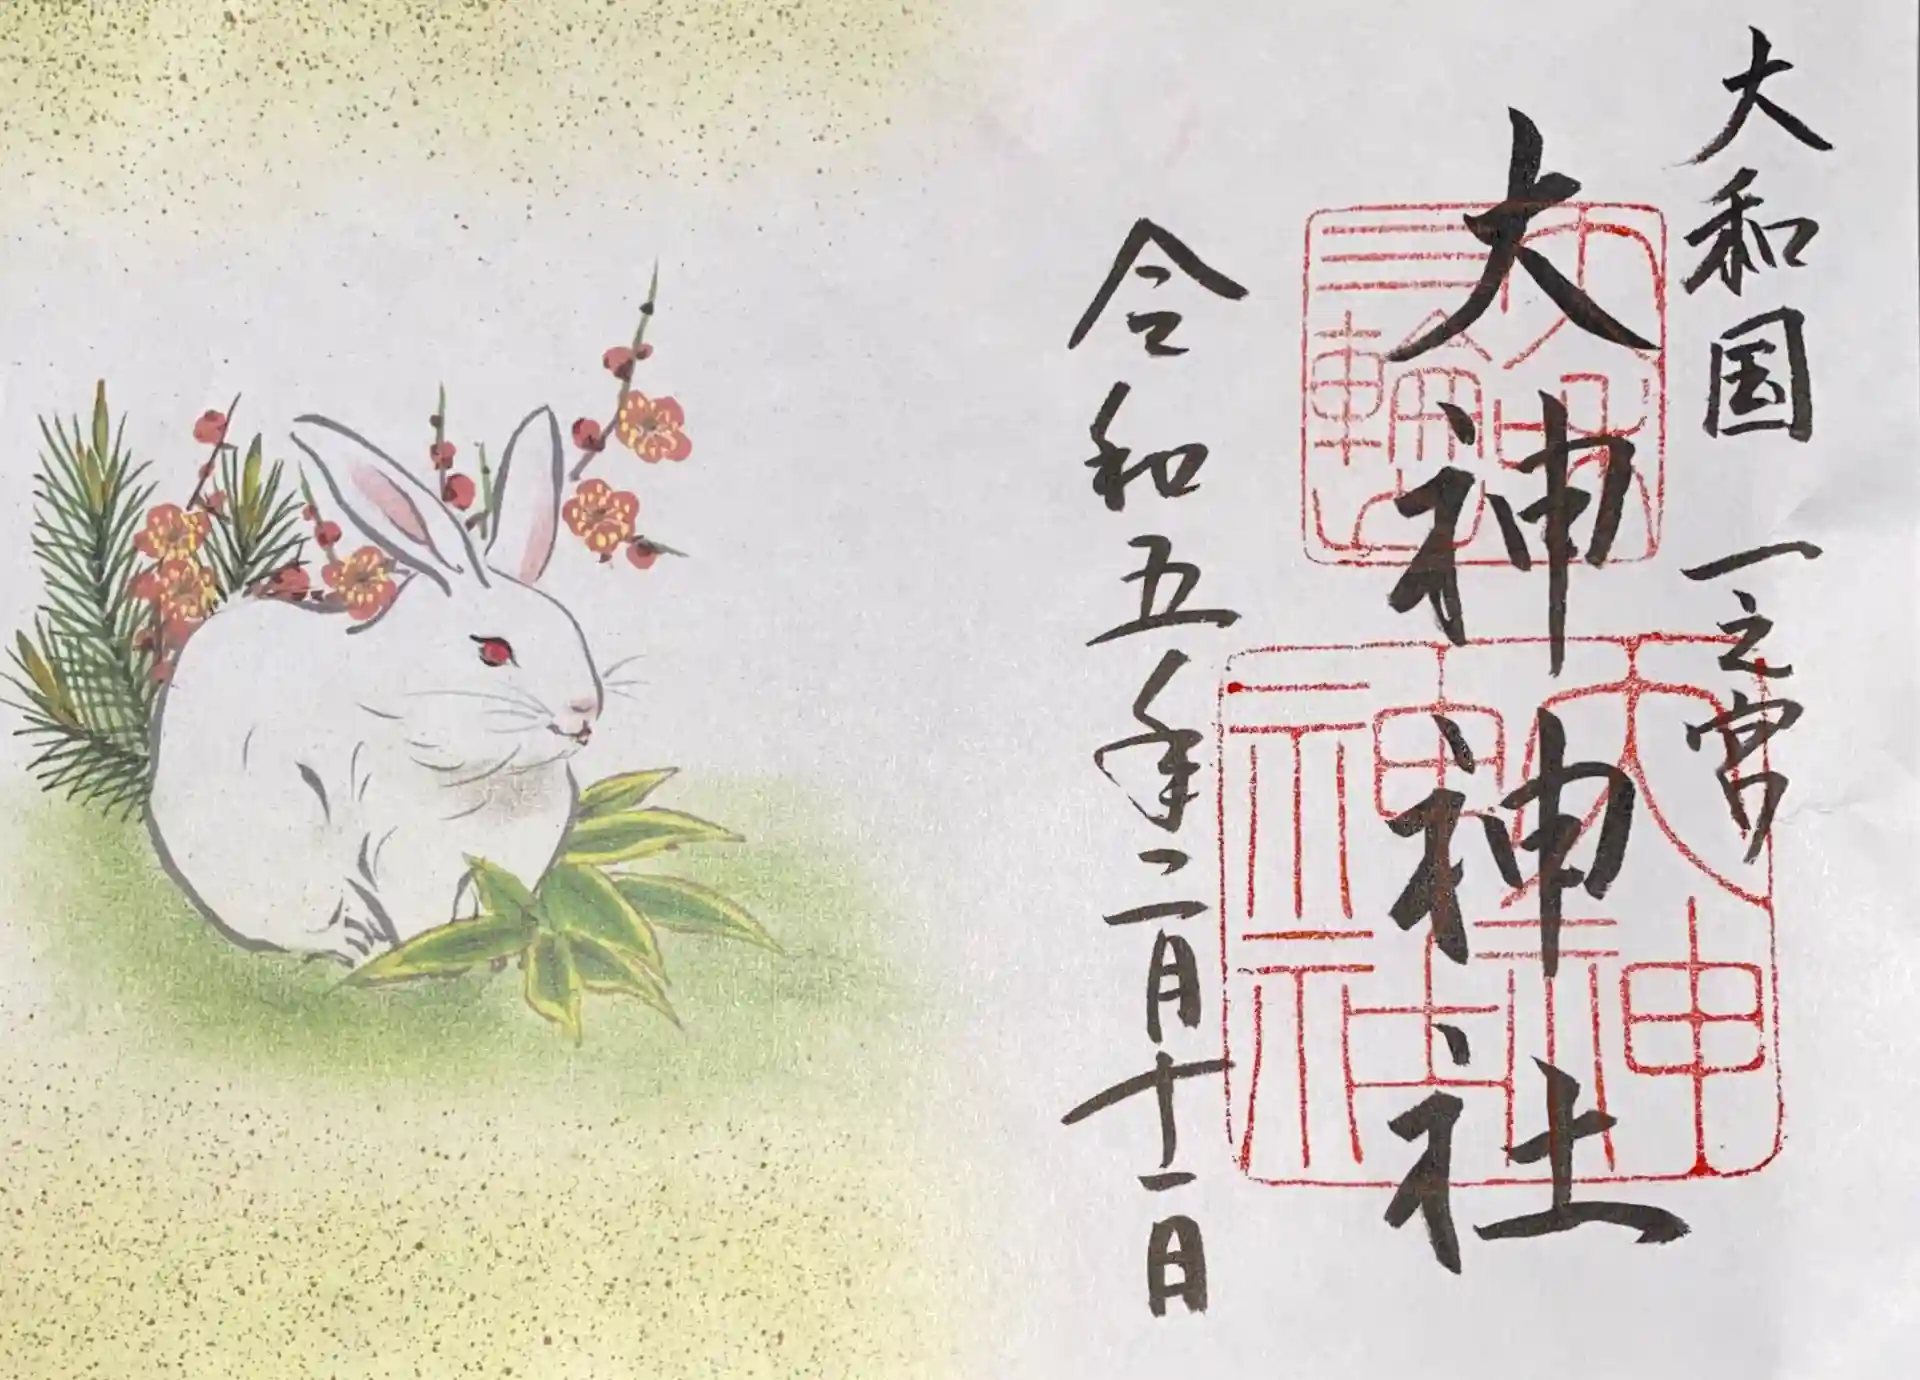 大和国 一之宮
大神神社
令和五年二月十一日
大神
神社